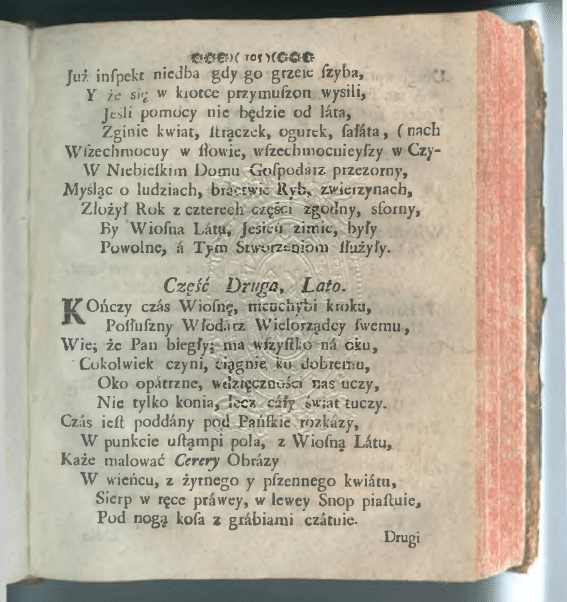 )( 105 )(
Już inſpekt niedba gdy go grzeie ſzyba,
Y że się w krotce przymuſzon wysili,
Jeśli pomocy nie będzie od láta,
Zginie kwiat, ſtrączek, ogurek, ſałáta, ( nach
Wſzechmocny w ſłowie, wſzechmocnieyſzy w Czy-
W Niebieſkim Domu Goſpodarz przezorny,
Myśląc o ludziach, bractwie Ryb, zwierzynach,
Złożył Rok z czterech części zgodny, sforny,
By Wiosna Látu, Jesień zimie, były
Powolne, á Tym Stworzeniom ſłużyły.
Część Druga, Lato.
KOńczy czás Wiosnę, nieuchybi kroku,
Poſłuſzny Włodarz Wielorządcy ſwemu,
Wie; że Pan biegły; ma wſzyſtko ná oku,
Cokolwiek czyni, ciągnie ku dobremu,
Oko opátrzne, wdzięczności nas uczy,
Nie tylko konia, lecz cáły świat tuczy.
Czás ieſt poddány pod Pańſkie rozkázy,
W punkcie uſtąmpi pola, z Wiosną Látu,
Każe malować Cerery Obrázy
W wieńcu, z żytnego y pſzennego kwiátu,
Sierp w ręce práwey, w lewey Snop piaſtuie,
Pod nogą koſa z grábiami czátuie.
Drugi